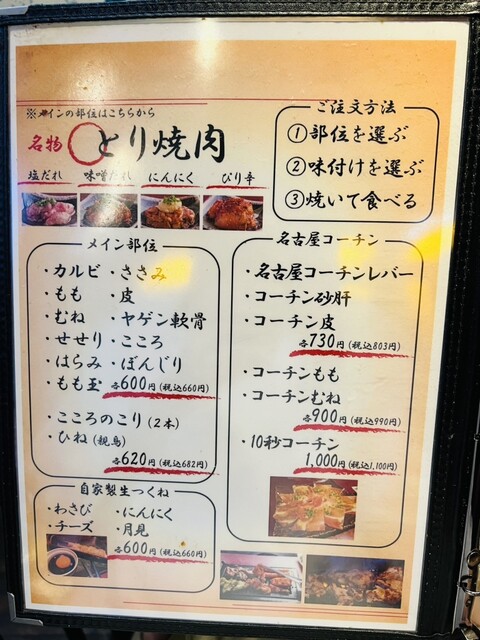 ※メインの部位はこちらから
名物 とり焼肉
塩だれ 味噌だれ にんにく ぴり辛
ご注文方法
①部位を選ぶ
②味付けを選ぶ
③焼いて食べる
メイン部位
・カルビ ・ささみ
・もも ・皮
・むね ・ヤゲン軟骨
・せせり ・こころ
・はらみ ・ぼんじり
・もも玉 各600円(税込660円)
・こころのこり(2本)
・ひね(親鳥)
各620円(税込682円)
自家製生つくね
・わさび ・にんにく
・チーズ ・月見
各600円(税込660円)
名古屋コーチン
・名古屋コーチンレバー
・コーチン砂肝
・コーチン皮
各730円(税込803円)
・コーチンもも
・コーチンむね
各900円(税込990円)
・10秒コーチン
1,000円(税込1,100円)